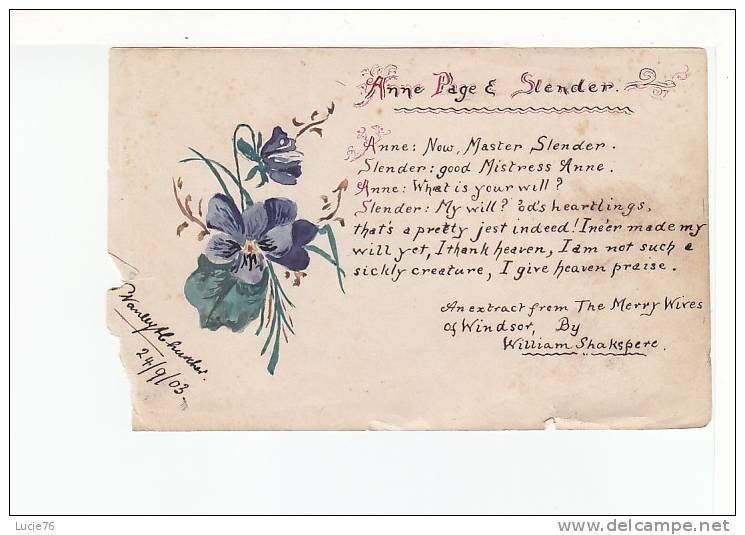 Anne Page & Slender.
Anne: Now, Master Slender.
Slender: good Mistress Anne.
Anne: What is your will?
Slender: My will? 'od's heartlings,
that's a pretty jest indeed! I ne'er made my
will yet, I thank heaven, I am not such a
sickly creature, I give heaven praise.
An extract from The Merry Wives
of Windsor, By
William Shakspere.
24/9/03.
Lucie76
www.delcampe.net